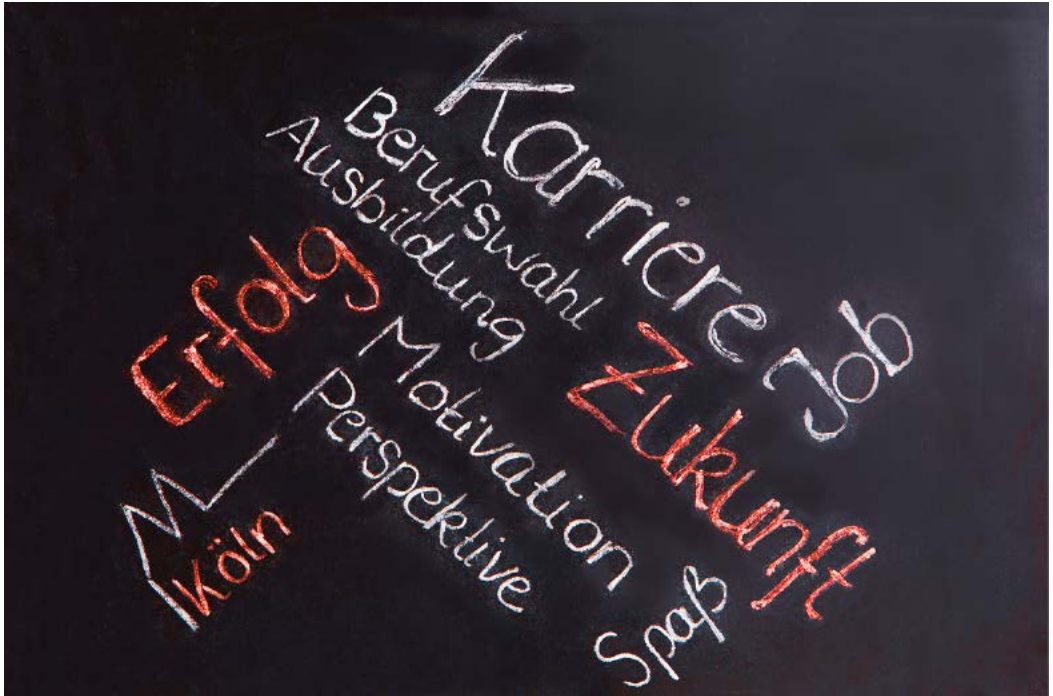 Karriere
Berufswahl
Ausbildung
Erfolg
Job
Zukunft
Motivation
Perspektive
Köln
Spaß